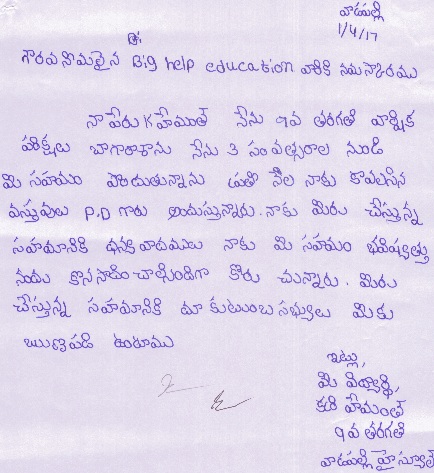 వాడపల్లి
1/4/17
గౌరవనీయులైన Big help education వారికి నమస్కారము
నా పేరు K హేమంత్ నేను 9వ తరగతి వార్షిక
పరీక్షలు బాగారాశాను నేను 3 సంవత్సరాల నుండి
మి సహయం పొందుతున్నాను ప్రతి నెల నాకు కావలసిన
వస్తువులు P.D గారు అందిస్తున్నారు. నాకు మీరు చేస్తున్న
సహమానికి ధన్యవాదములు నాకు మి సహయం భవిష్యత్తు
నందు కొనసాగించాల్సిందిగా కోరు చున్నాను. మీరు
చేస్తున్న సహమానికి మా కుటుంబ సభ్యులు మీకు
ఋణపడి ఉంటాము
ఇట్లు,
మి విద్యార్థి,
హేమంత్
9వ తరగతి
వాడపల్లి హైస్కూల్